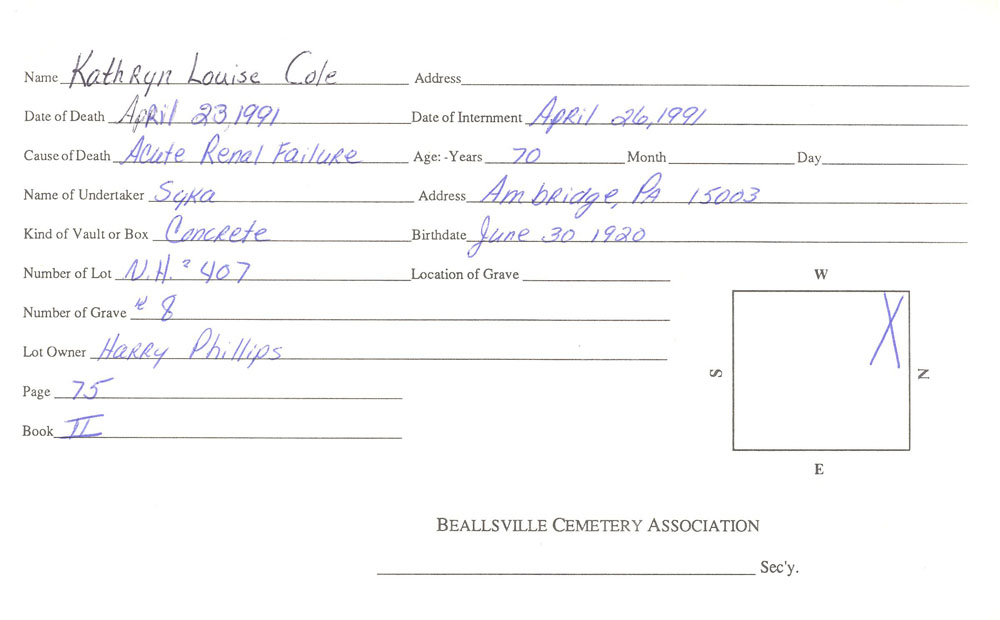 Name Kathryn Louise Cole Address
Date of Death April 23, 1991 Date of Internment April 26, 1991
Cause of Death Acute Renal Failure Age: -Years 70 Month Day
Name of Undertaker Syka Address Ambridge, PA 15003
Kind of Vault or Box Concrete Birthdate June 30 1920
Number of Lot N.H. # 407 Location of Grave
W
Number of Grave # 8
Lot Owner Harry Phillips
S N
Page 75
Book II
E
BEALLSVILLE CEMETERY ASSOCIATION
Sec'y.